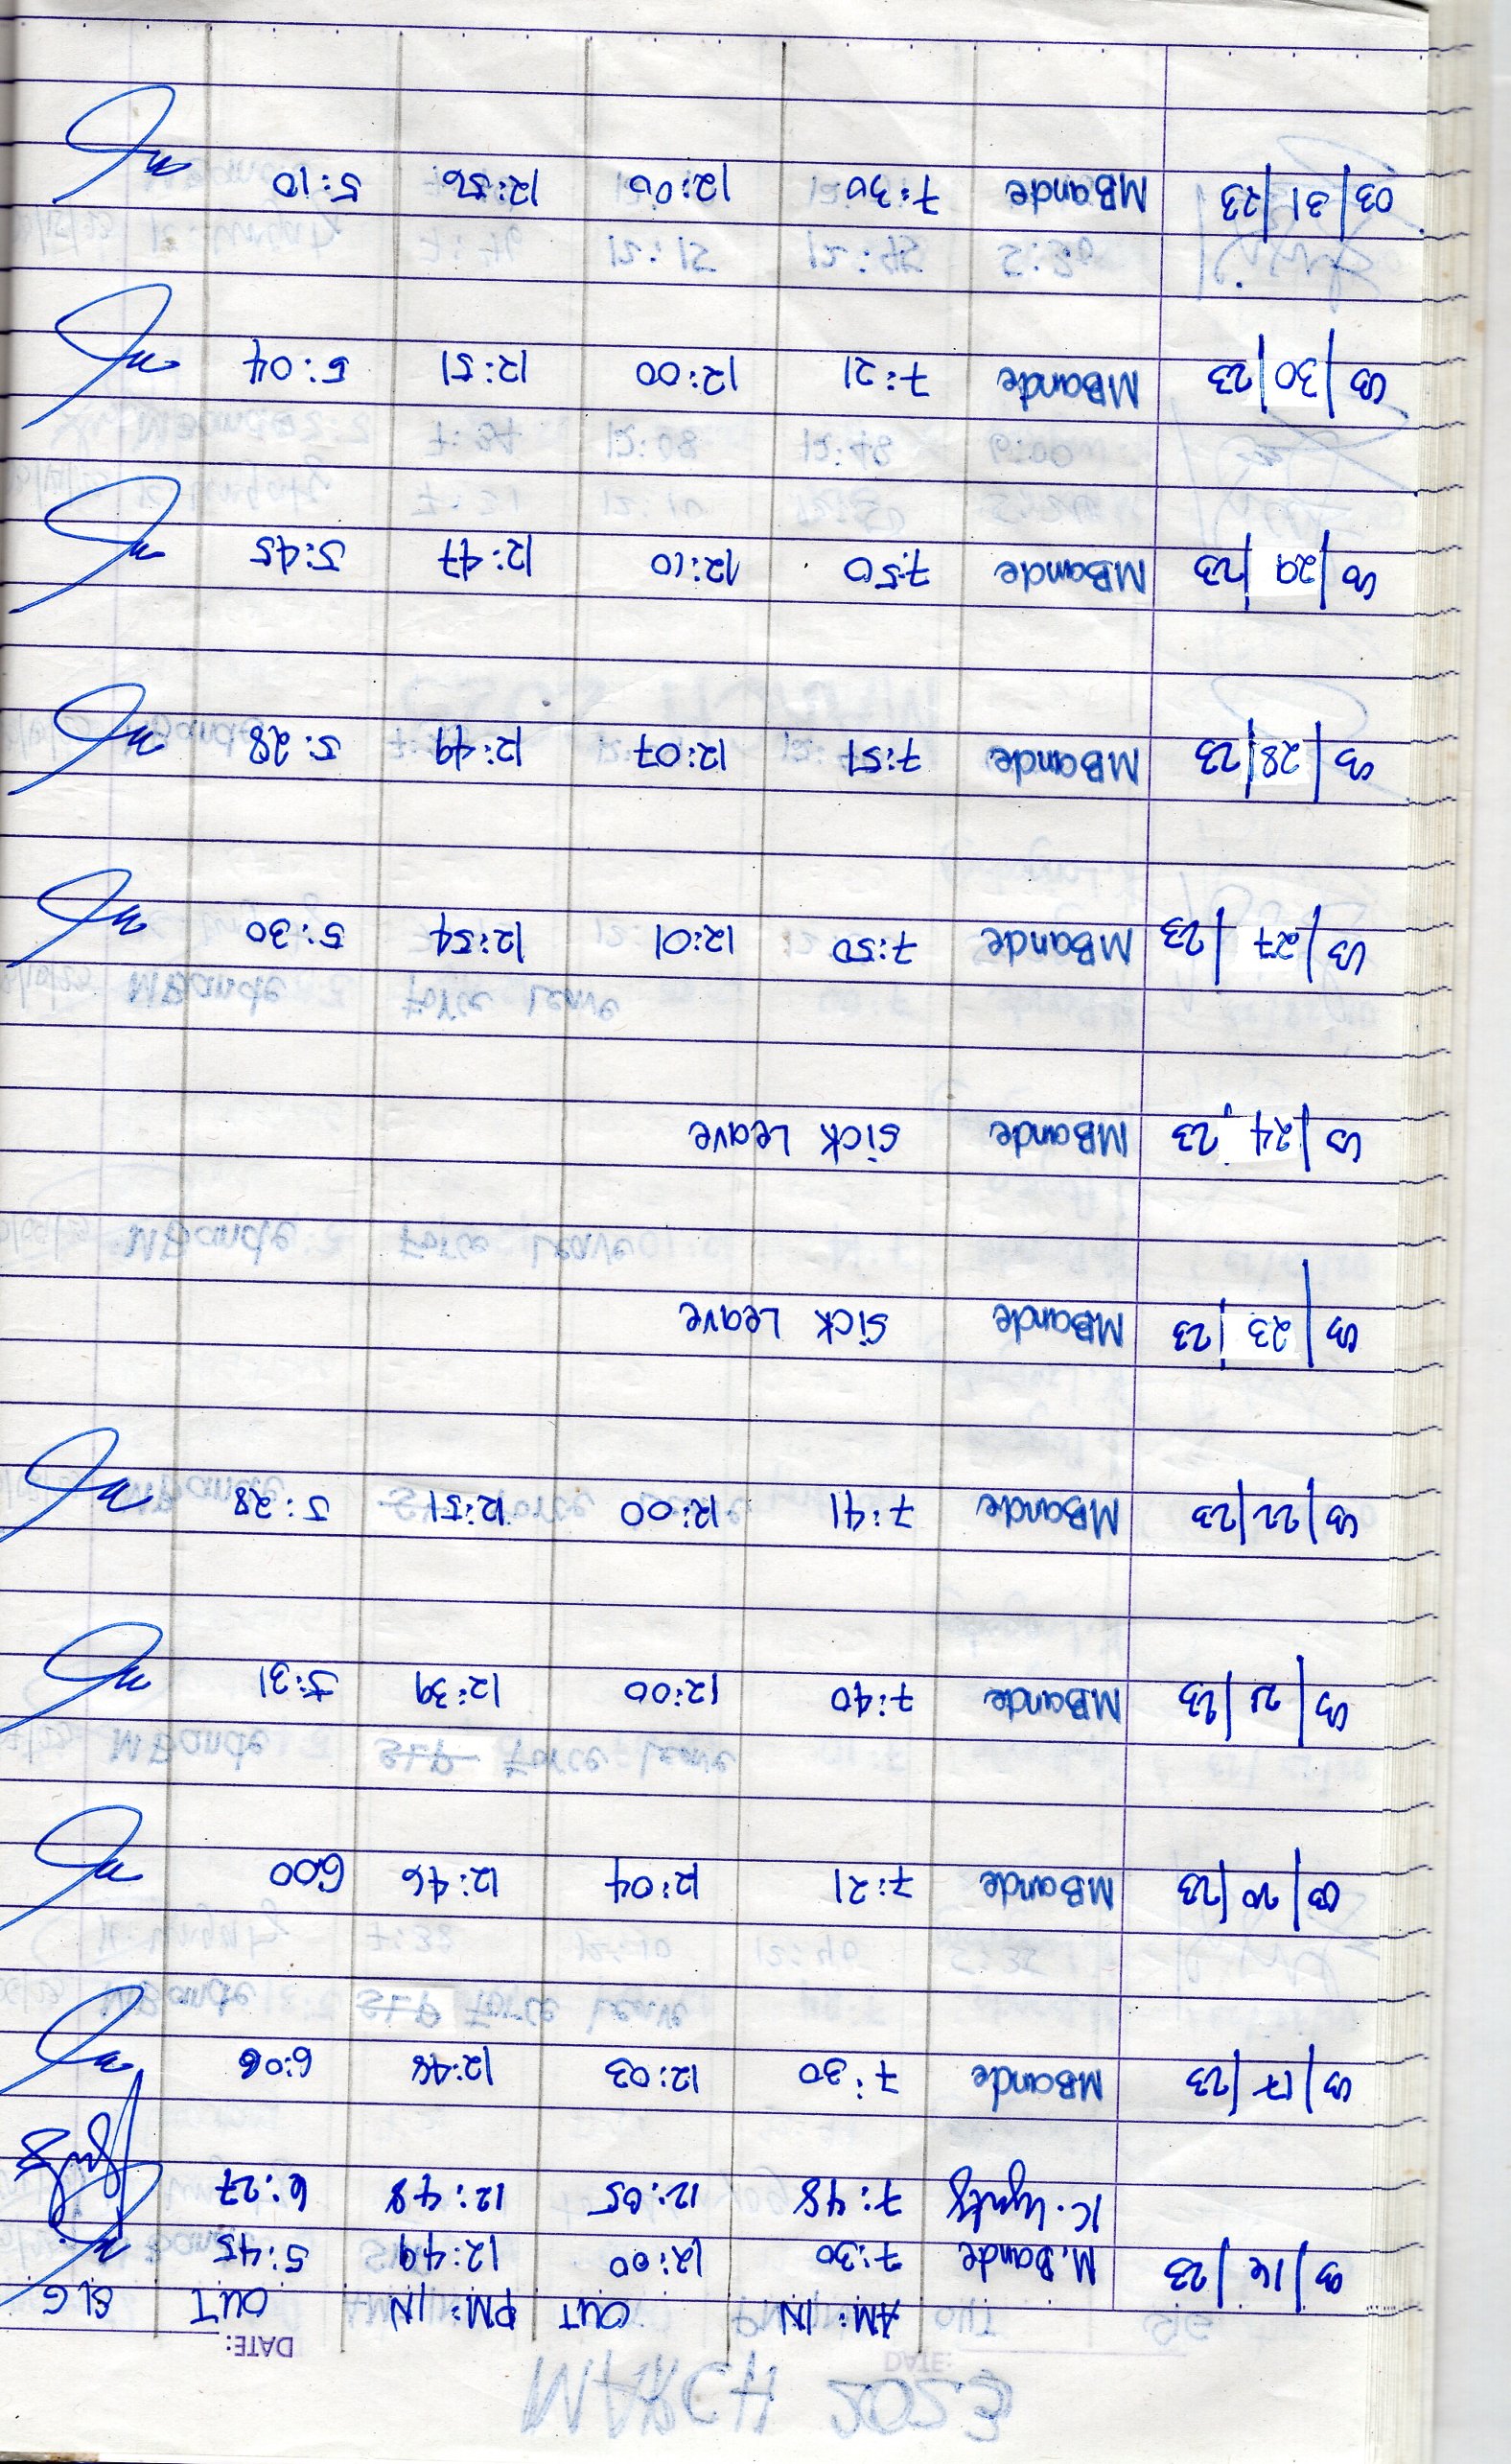 MARCH 2023
DATE:
AM: IN OUT PM: IN OUT SIG
03/16/23 M.Bande 7:30 12:00 12:49 5:45
7:48 12:05 12:48 6:27
03/17/23 MBande 7:30 12:03 12:48 6:06
03/20/23 MBande 7:21 12:04 12:46 6:00
03/21/23 MBande 7:40 12:00 12:39 5:31
03/22/23 MBande 7:41 12:00 12:51 5:28
03/23/23 MBande Sick Leave
03/24/23 MBande Sick Leave
03/27/23 MBande 7:50 12:01 12:54 5:30
03/28/23 MBande 7:51 12:07 12:49 5:28
03/29/23 MBande 7:50 12:10 12:47 5:45
03/30/23 MBande 7:21 12:00 12:51 5:04
03/31/23 MBande 7:30 12:06 12:56 5:10